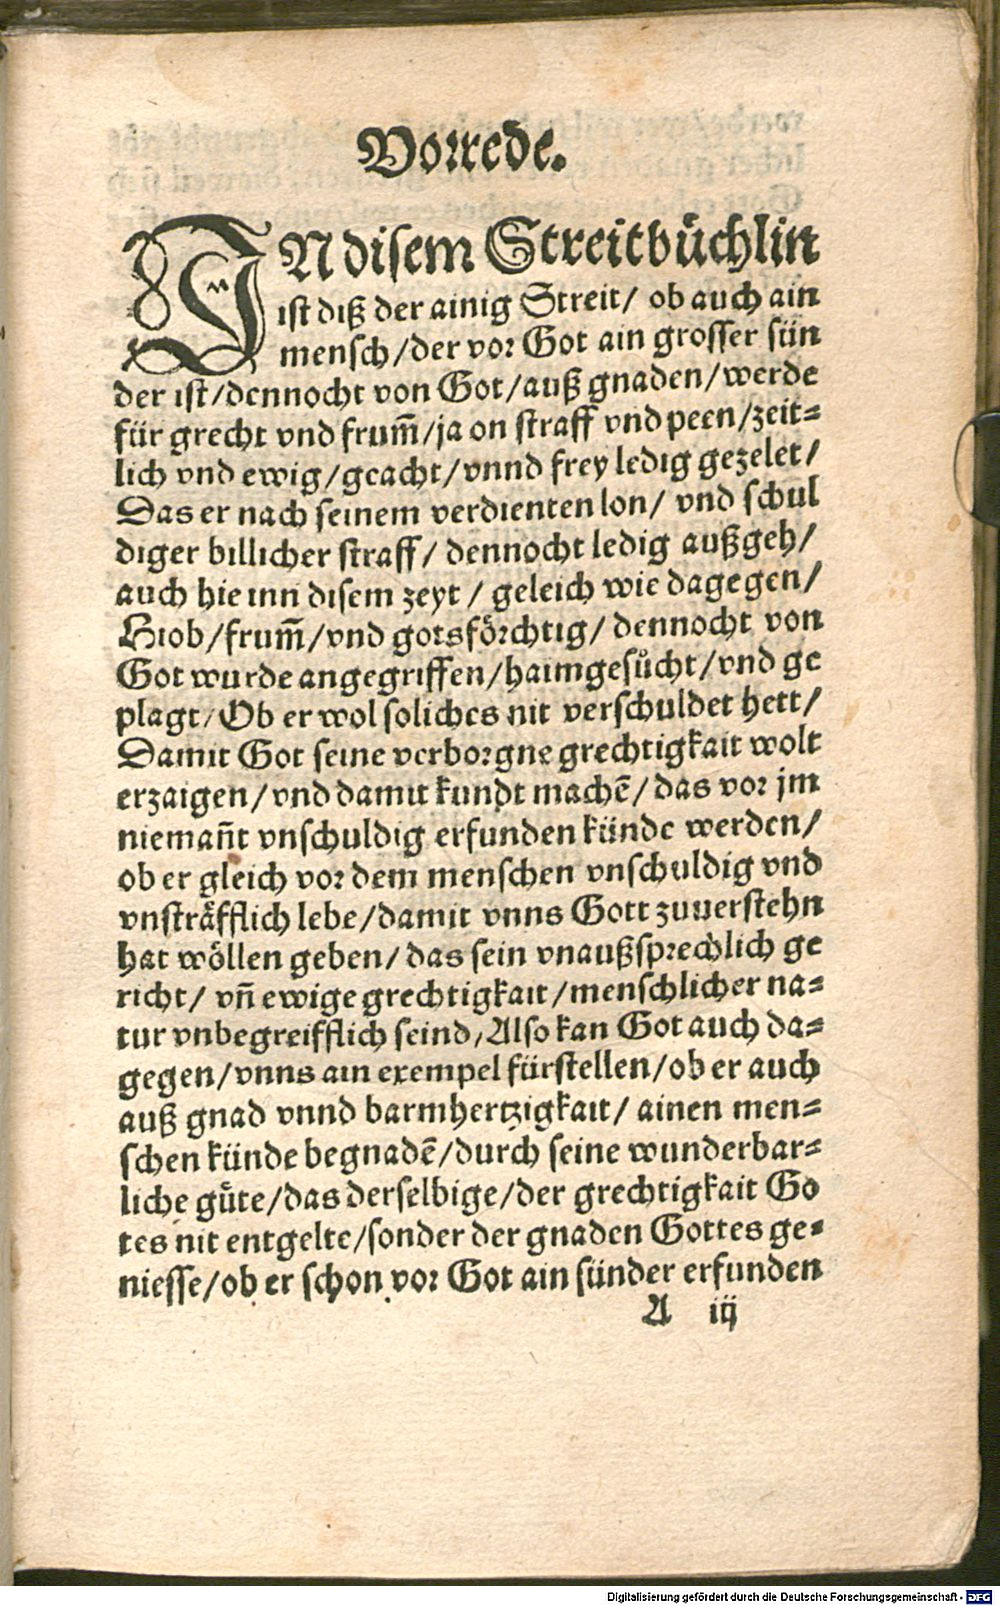 Vorrede.
IN disem Streitbüchlin
ist diß der ainig Streit/ ob auch ain
mensch/der vor Got ain grosser sün
der ist/dennocht von Got/auß gnaden/werde
für grecht vnd frum̃/ja on straff vnd peen/zeit-
lich vnd ewig/geacht/vnnd frey ledig gezelet/
Das er nach seinem verdienten lon/ vnd schul
diger billicher straff/ dennocht ledig außgeh/
auch hie inn disem zeyt / geleich wie dagegen/
Hiob/frum̃/vnd gotsförchtig/ dennocht von
Got wurde angegriffen/haimgesůcht/vnd ge
plagt/Ob er wol soliches nit verschuldet hett/
Damit God seine verborgne grechtigkait wolt
erzaigen/vnd damit kundt machẽ/das vor jm
niemañt vnschuldig erfunden künde werden/
ob er gleich vor dem menschen vnschuldig vnd
vnsträfflich lebe/damit vnns Gott zuuerstehn
hat wöllen geben/das sein vnaußsprechlich ge
richt/ vñ ewige grechtigkait/menschlicher na-
tur vnbegreifflich seind/Also kan Got auch da-
gegen/vnns ain exempel fürstellen/ob er auch
auß gnad vnnd barmhertzigkait/ ainen men-
schen künde begnadẽ/durch seine wunderbar-
liche güte/das derselbige/der grechtigkait Go
tes nit entgelte/sonder der gnaden Gottes ge-
niesse/ob er schon vor Got ain sünder erfunden
A iij
Digitalisierung gefördert durch die Deutsche Forschungsgemeinschaft - DFG